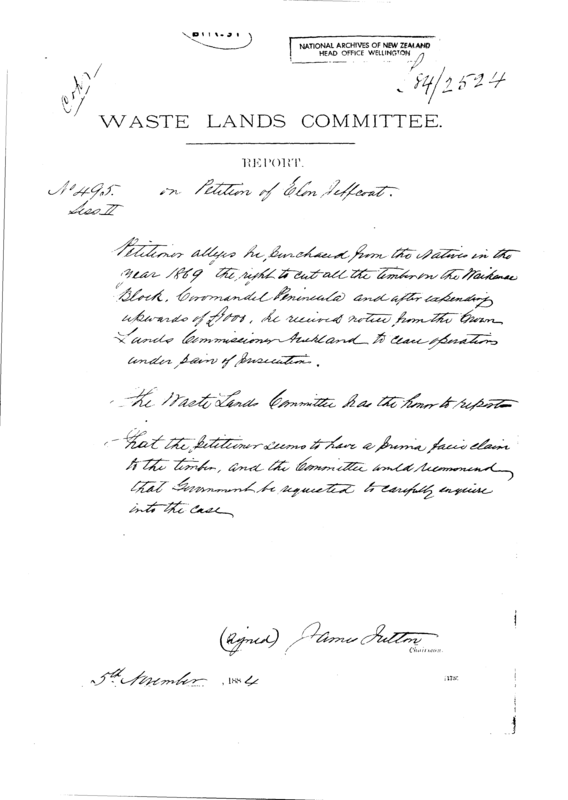 NATIONAL ARCHIVES OF NEW ZEALAND
HEAD OFFICE WELLINGTON
84/2524
Copy
WASTE LANDS COMMITTEE.
REPORT.
No 495. on Petition of Elon Jeffcoat.
Sess II
Petitioner alleges he purchased from the Natives in the
year 1869 the right to cut all the timber on the Waikanae
Block, Coromandel Peninsula and after expending
upwards of £1000, he received notice from the Crown
Lands Commissioner Auckland to cease operations
under pain of prosecution.
The Waste Lands Committee has the honor to report
That the petitioner seems to have a prima facie claim
to the timber, and the Committee would recommend
that Government be requested to carefully enquire
into the case
(signed) James Fulton
Chairman.
5th November, 1884